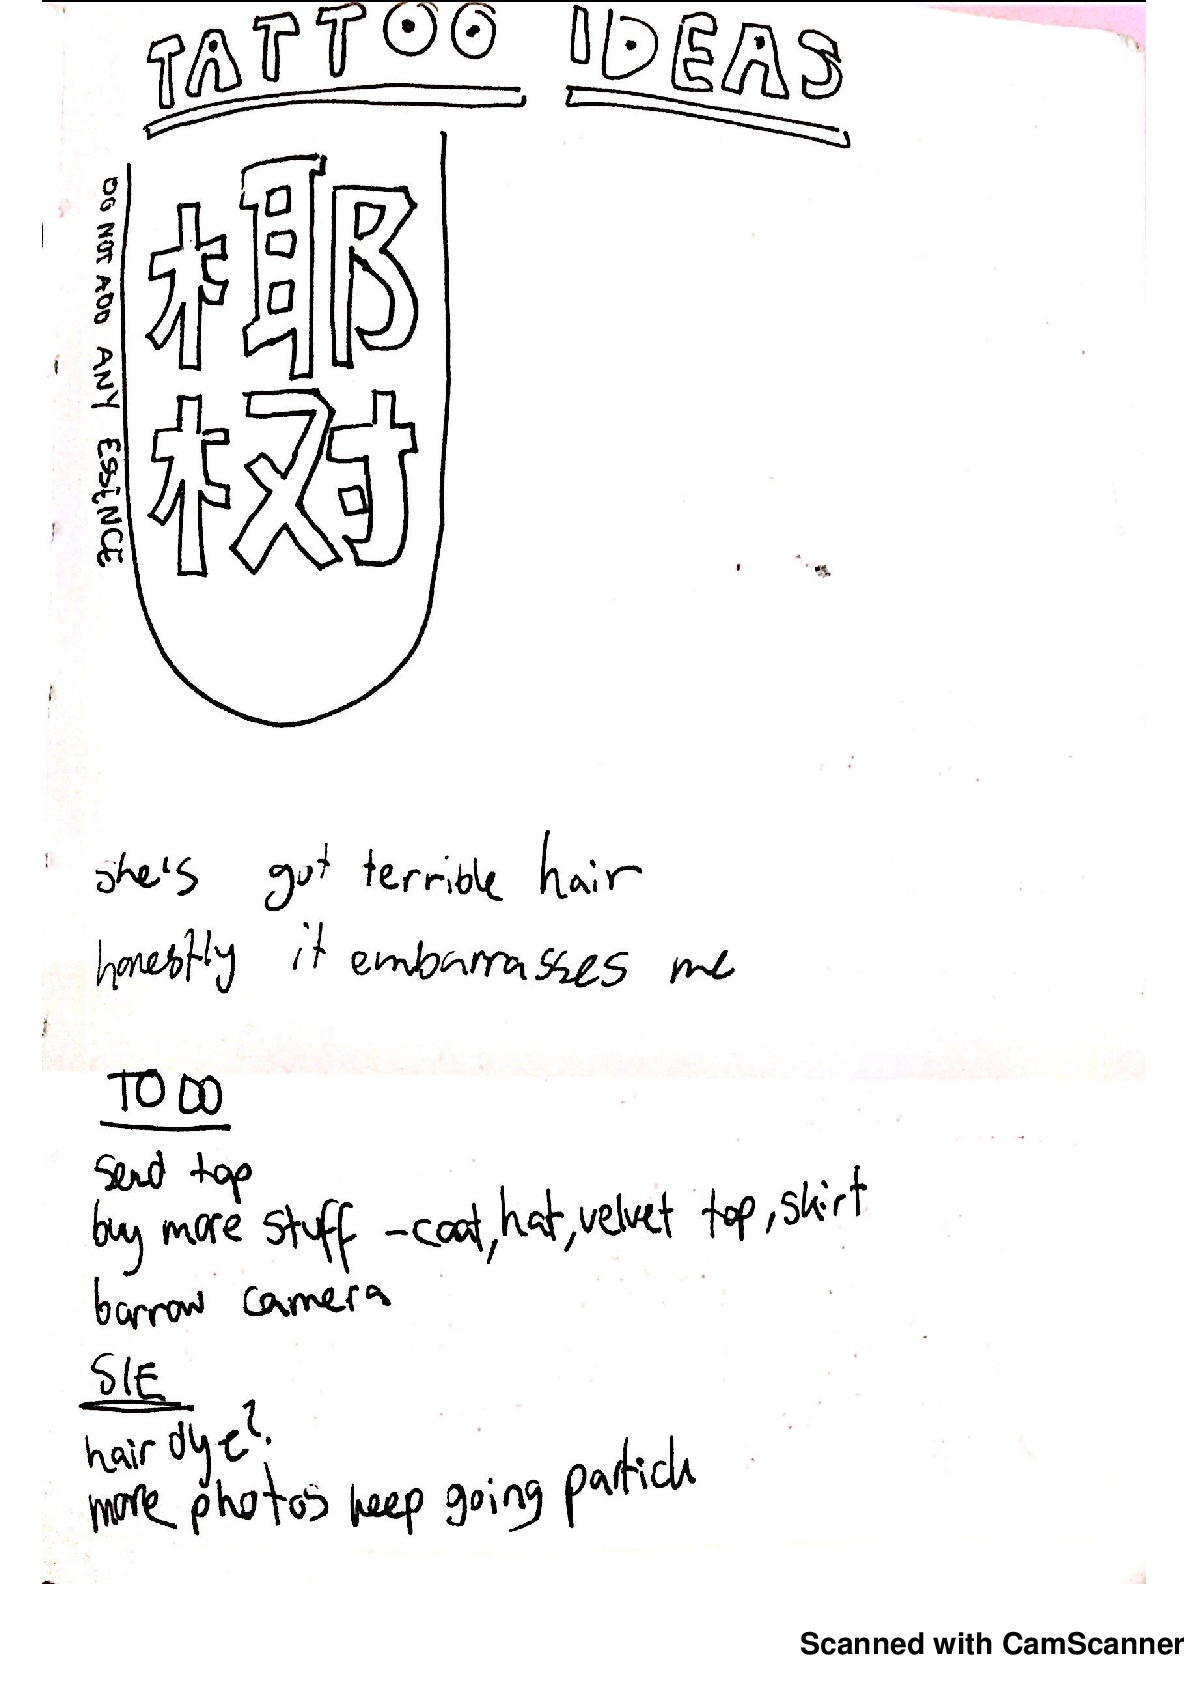 TATTOO IDEAS
DO NOT ADD ANY ESSENCE
椰
树
she's got terrible hair
honestly it embarrasses me
TO DO
send top
buy more stuff - coat, hat, velvet top, skirt
borrow camera
SIE
hair dye?
more photos keep going
Scanned with CamScanner